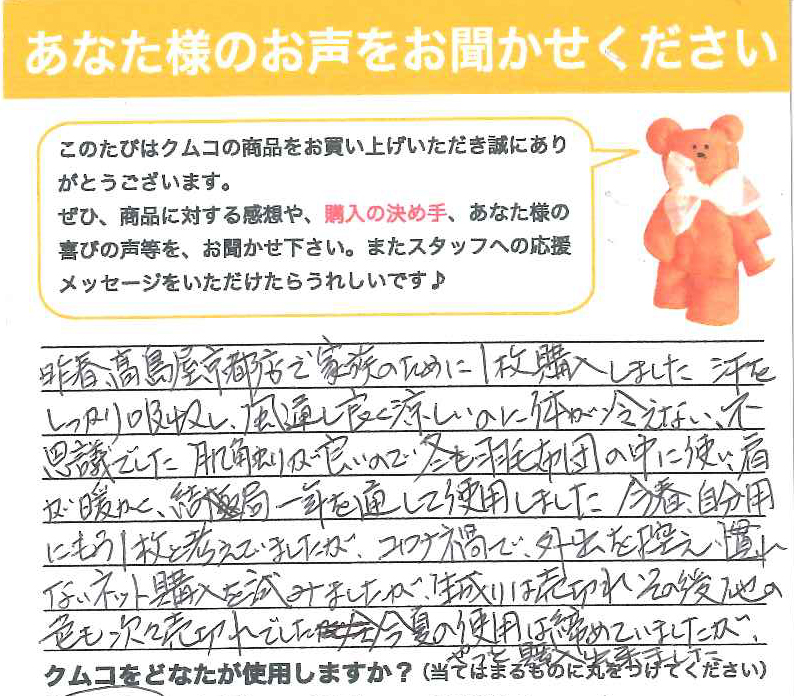 あなた様のお声をお聞かせください
このたびはクムコの商品をお買い上げいただき誠にあり
がとうございます。
ぜひ、商品に対する感想や、購入の決め手、あなた様の
喜びの声等を、お聞かせ下さい。またスタッフへの応援
メッセージをいただけたらうれしいです♪
昨春、高島屋京都店で家族のために1枚購入しました 汗を
しっかり吸収し、風通し良く涼しいのに体が冷えない、不
思議でした 肌触りが良いので冬も羽毛布団の中に使い、肩
が暖かく、結局一年を通して使用しました 今春、自分用
にもう1枚と考えていましたが、コロナ禍で、外出を控え、慣れ
ないネット購入を試みましたが、生成りは売切れ その後、他の
色も次々売切れでした 今夏の使用は締めていましたが、
やっと購入出来ました
クムコをどなたが使用しますか?(当てはまるものに丸をつけてください)